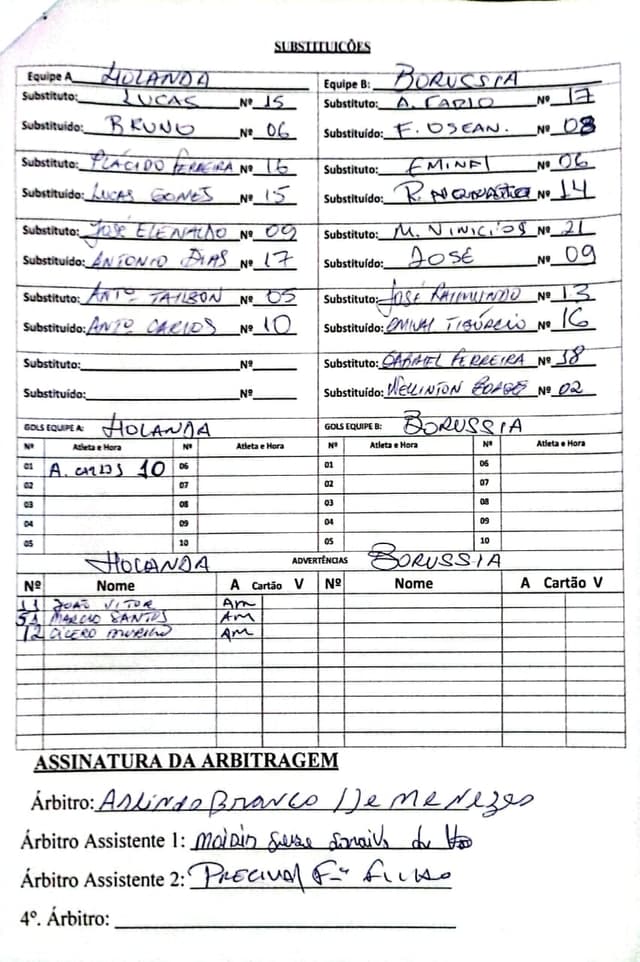 SUBSTITUIÇÕES
Equipe A HOLANDA Equipe B: BORUSSIA
Substituto: LUCAS Nº 15 Substituto: A. Nº 17
Substituído: BRUNO Nº 06 Substituído: F. Nº 08
Substituto: PLÁCIDO FERREIRA Nº 16 Substituto: Nº 06
Substituído: LUCAS GOMES Nº 15 Substituído: R. Nº 14
Substituto: JOSÉ ELENALDO Nº 09 Substituto: M. VINICIOS Nº 21
Substituído: ANTONIO DIAS Nº 17 Substituído: JOSÉ Nº 09
Substituto: ANTº Nº 05 Substituto: JOSÉ RAIMUNDO Nº 13
Substituído: ANTº CARLOS Nº 10 Substituído: TIBÚRCIO Nº 16
Substituto: Nº Substituto: RAFAEL FERREIRA Nº 18
Substituído: Nº Substituído: WELLINTON BORGES Nº 02
GOLS EQUIPE A: HOLANDA GOLS EQUIPE B: BORUSSIA
Nº Atleta e Hora Nº Atleta e Hora Nº Atleta e Hora Nº Atleta e Hora
01 A. CARLOS 10 06 01 06
02 07 02 07
03 08 03 08
04 09 04 09
05 10 05 10
HOLANDA ADVERTÊNCIAS BORUSSIA
Nº Nome A Cartão V Nº Nome A Cartão V
11 JOÃO VITOR Am
51 MARCIO SANTOS Am
12 CICERO MURILO Am
ASSINATURA DA ARBITRAGEM
Árbitro: ARLINDO BRANCO DE MENEZES
Árbitro Assistente 1:
Árbitro Assistente 2: PRECIVAL
4º. Árbitro: